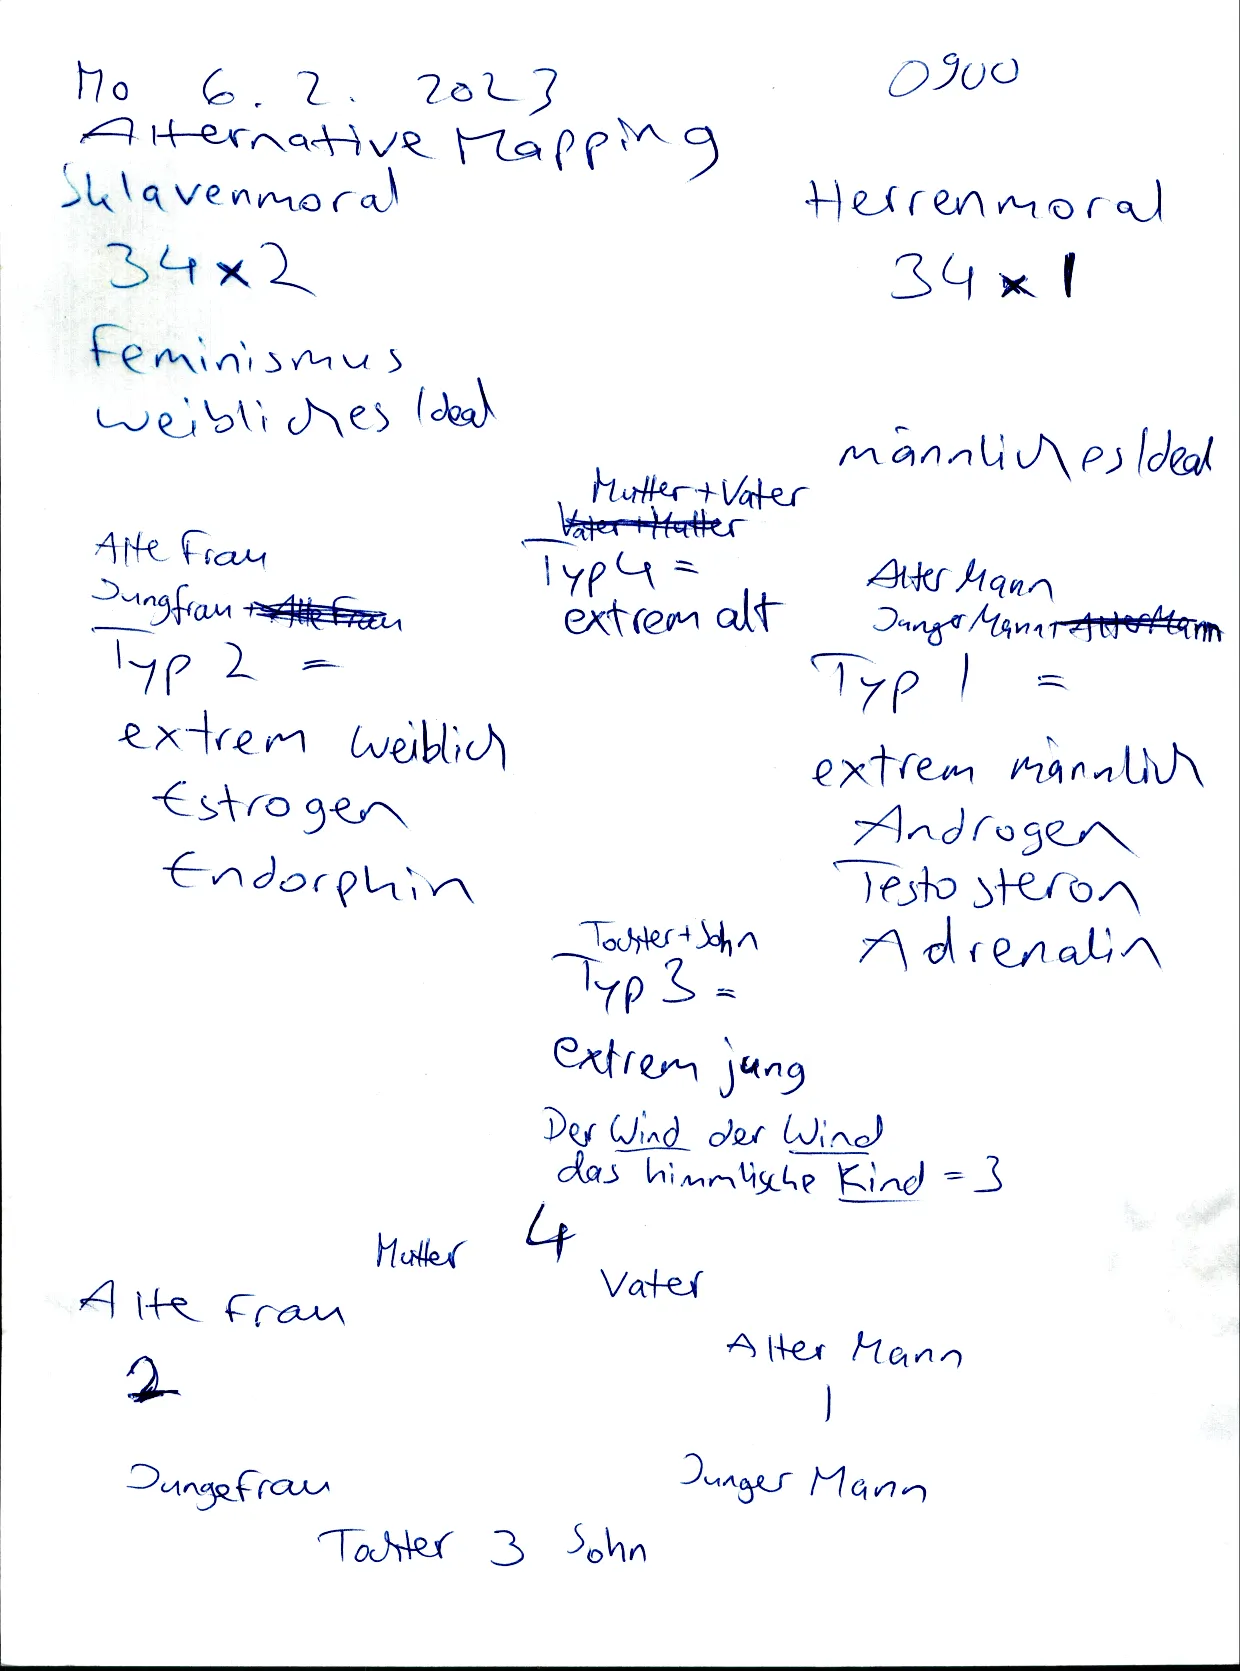 Mo 6. 2. 2023 0900
Alternative Mapping
Sklavenmoral Herrenmoral
34x2 34x1
Feminismus
weibliches Ideal
männliches Ideal
Mutter+Vater
Vater+Mutter
Alte Frau Typ 4 = Alter Mann
Jungfrau + Alte Frau extrem alt Junger Mann + Alter Mann
Typ 2 = Typ 1 =
extrem weiblich extrem männlich
Estrogen Androgen
Endorphin Testosteron
Tochter+Sohn Adrenalin
Typ 3 =
extrem jung
Der Wind der Wind
das himmlische Kind = 3
Mutter 4
Vater
Alte Frau
Alter Mann
2 1
Junge Frau Junger Mann
Tochter 3 Sohn